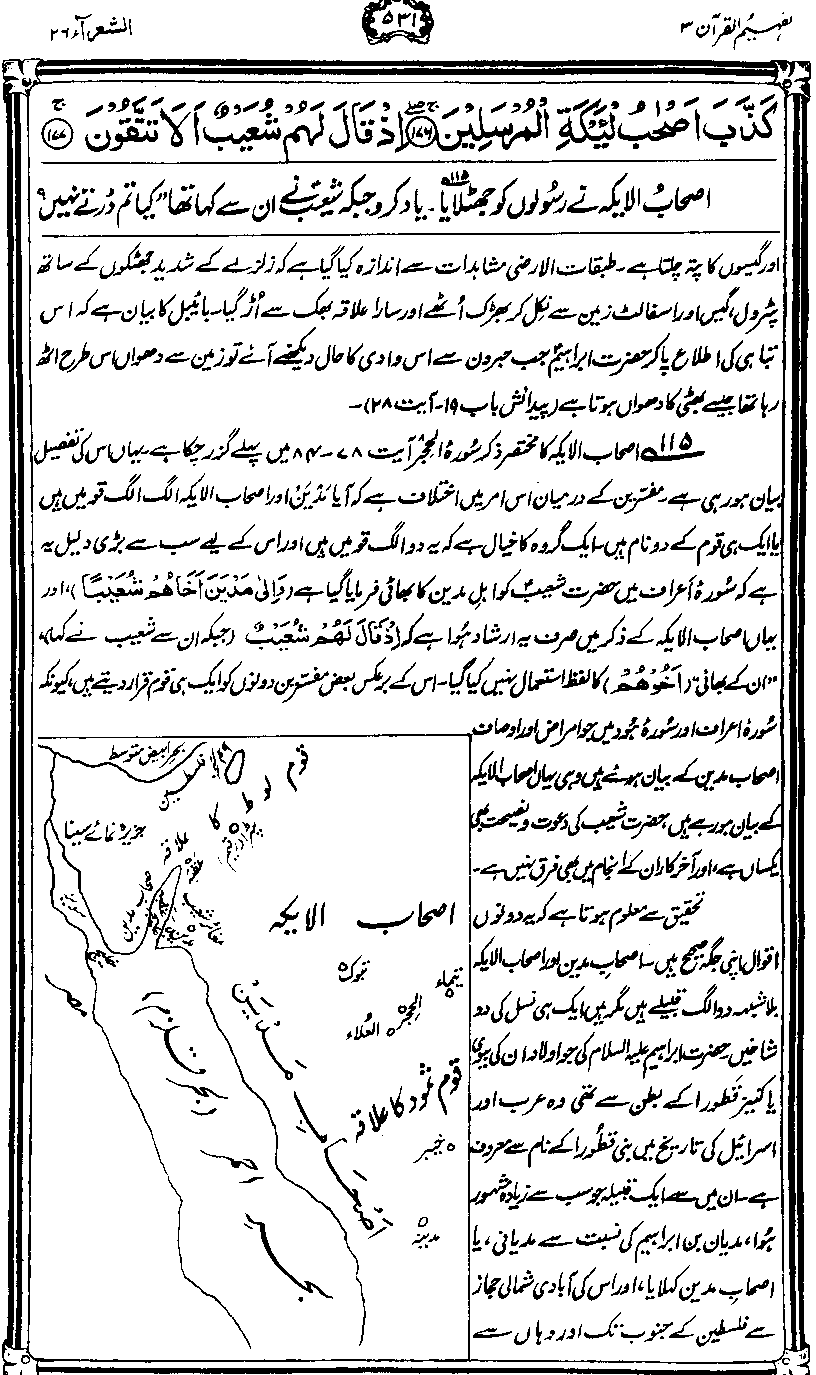 تفہیم القرآن ۳
۵۳۱
الشعرآء ۲۶
كَذَّبَ اَصْحٰبُ لْـَٔيْكَةِ الْمُرْسَلِيْنَ ۱۷۶ اِذْ قَالَ لَهُمْ شُعَيْبٌ اَلَا تَتَّقُوْنَ ۱۷۷
اصحابُ الایکہ نے رسُولوں کو جھٹلایا۔ ۱۱۵ یاد کرو جبکہ شعیبؑ نے ان سے کہا تھا ”کیا تم ڈرتے نہیں؟
اور گیسوں کا پتہ چلتا ہے۔ طبقات الارضی مشاہدات سے اندازہ کیا گیا ہے کہ زلزلے کے شدید جھٹکوں کے ساتھ
پٹرول، گیس اور اسفالٹ زمین سے نکل کر بھڑک اُٹھے اور سارا علاقہ بھک سے اُڑ گیا۔ بائیبل کا بیان ہے کہ اس
تباہی کی اطلاع پا کر حضرت ابراہیمؑ جب حبرون سے اس وادی کا حال دیکھنے آئے تو زمین سے دھواں اس طرح اٹھ
رہا تھا جیسے بھٹی کا دھواں ہوتا ہے (پیدائش باب ۱۹۔ آیت ۲۸)۔
۱۱۵ اصحاب الایکہ کا مختصر ذکر سُورۂ الحِجر آیت ۷۸-۸۴ میں پہلے گزر چکا ہے۔ یہاں اس کی تفصیل
بیان ہو رہی ہے۔ مفسّرین کے درمیان اس امر میں اختلاف ہے کہ آیا مَدْیَن اور اصحاب الایکہ الگ الگ قومیں ہیں
یا ایک ہی قوم کے دو نام ہیں۔ ایک گروہ کا خیال ہے کہ یہ دو الگ قومیں ہیں اور اس کے لیے سب سے بڑی دلیل یہ
ہے کہ سُورۂ اَعراف میں حضرت شعیبؑ کو اہلِ مدین کا بھائی فرمایا گیا ہے (وَاِلٰی مَدْیَنَ اَخَاهُمْ شُعَیْبًا)، اور
یہاں اصحاب الایکہ کے ذکر میں صرف یہ ارشاد ہُوا ہے کہ (اِذْ قَالَ لَهُمْ شُعَیْبٌ (جبکہ ان سے شعیب نے کہا)،
”ان کے بھائی“ (اَخُوْهُمْ) کا لفظ استعمال نہیں کیا گیا۔ اس کے برعکس بعض مفسّرین دونوں کو ایک ہی قوم قرار دیتے ہیں، کیونکہ
سُورۂ اعراف اور سُورۂ ہُود میں جو امراض اور اوصاف
اصحاب مدین کے بیان ہوئے ہیں وہی یہاں اصحاب الایکہ
کے بیان ہو رہے ہیں، حضرت شعیب کی دعوت و نصیحت بھی
یکساں ہے، اور آخر کار ان کے انجام میں بھی فرق نہیں ہے۔
تحقیق سے معلوم ہوتا ہے کہ یہ دونوں
اقوال اپنی جگہ صحیح ہیں۔ اصحاب مدین اور اصحاب الایکہ
بلا شبہ دو الگ قبیلے ہیں مگر ہیں ایک ہی نسل کی دو
شاخیں۔ حضرت ابراہیم علیہ السلام کی جو اولاد ان کی بیوی
یا کنیز قَطُورا کے بطن سے تھی وہ عرب اور
اسرائیل کی تاریخ میں بنی قَطُورا کے نام سے معروف
ہے۔ ان میں سے ایک قبیلہ جو سب سے زیادہ مشہور
ہُوا، مدیان بن ابراہیم کی نسبت سے مدیانی، یا
اصحاب مدین کہلایا، اور اس کی آبادی شمالی حجاز
سے فلسطین کے جنوب تک اور وہاں سے
بحر ابیض متوسط
فلسطین
قوم لوط کا علاقہ
جزیرہ نمائے سینا
عقبہ
اصحاب الایکہ
تبوک
تیماء
الحِجر
العُلاء
مصر
اَصْحَابِ مَدْیَن
قوم ثمود کا علاقہ
خیبر
مدینہ
بحر احمر (بحر قلزم)